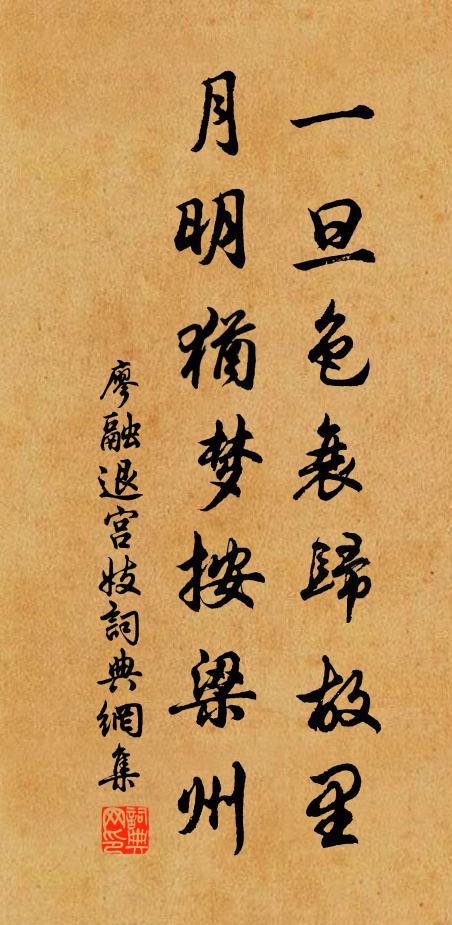 一旦色衰歸故里
月明猶梦按梁州
廖融退宫妓詞典網集
詞典网印